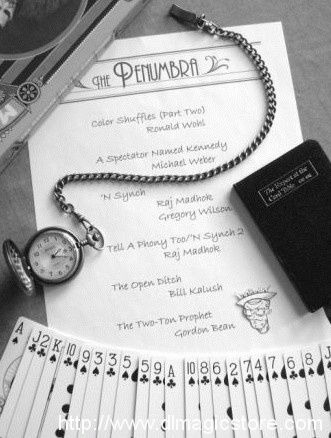 THE PENUMBRA
Color Shuffles (Part Two)
Ronald Wohl
A Spectator Named Kennedy
Michael Weber
'N Synch
Raj Madhok
Gregory Wilson
The Expert at the
Card Table
Tell A Phony Too/'N Synch 2
Raj Madhok
The Open Ditch
Bill Kalush
The Two-Ton Prophet
Gordon Bean
A J 2 K 10 9 3 3 5 5 9 A 10 8 9 10 8 4 7 2 7 6 8 J
http://www.dlmagicstore.com